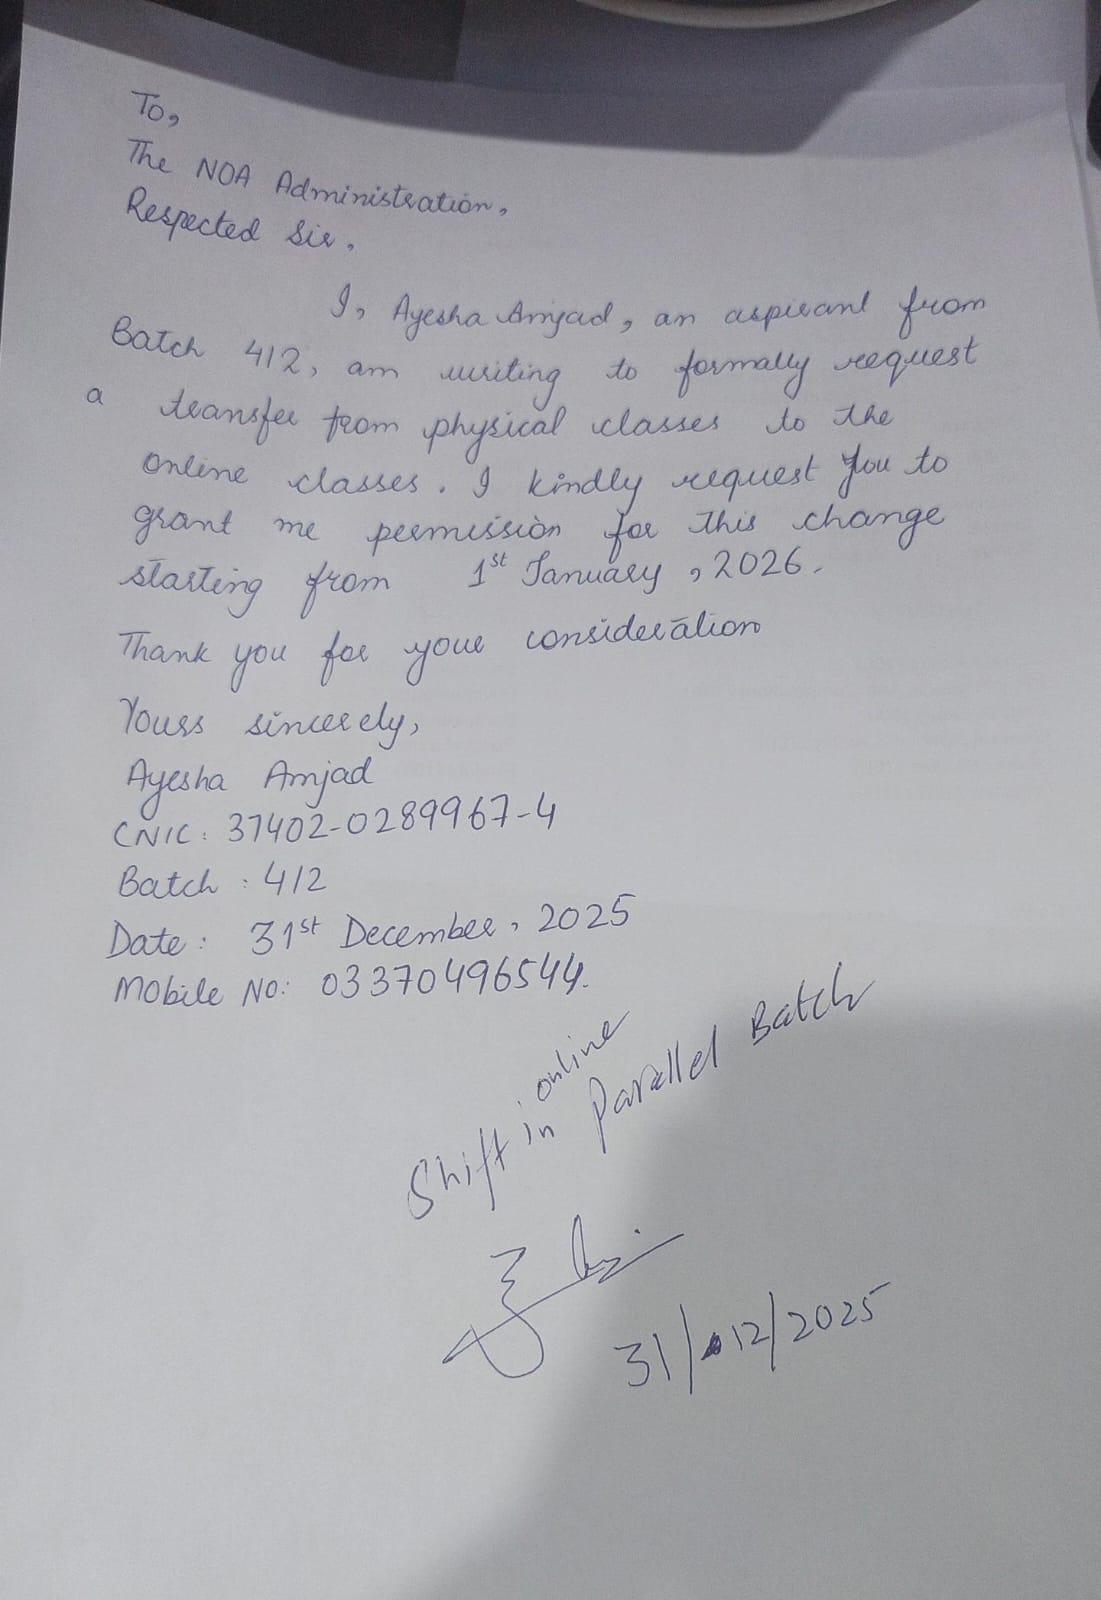 To,
The NOA Administration,
Respected Sir,
I, Ayesha Amjad, an aspirant from
Batch 412, am writing to formally request
a transfer from physical classes to the
online classes. I kindly request you to
grant me permission for this change
starting from 1st January, 2026.
Thank you for your consideration
Yours sincerely,
Ayesha Amjad
CNIC: 37402-0289967-4
Batch : 412
Date: 31st December, 2025
Mobile No: 03370496544.
online
Shift in Parallel Batch
31/12/2025